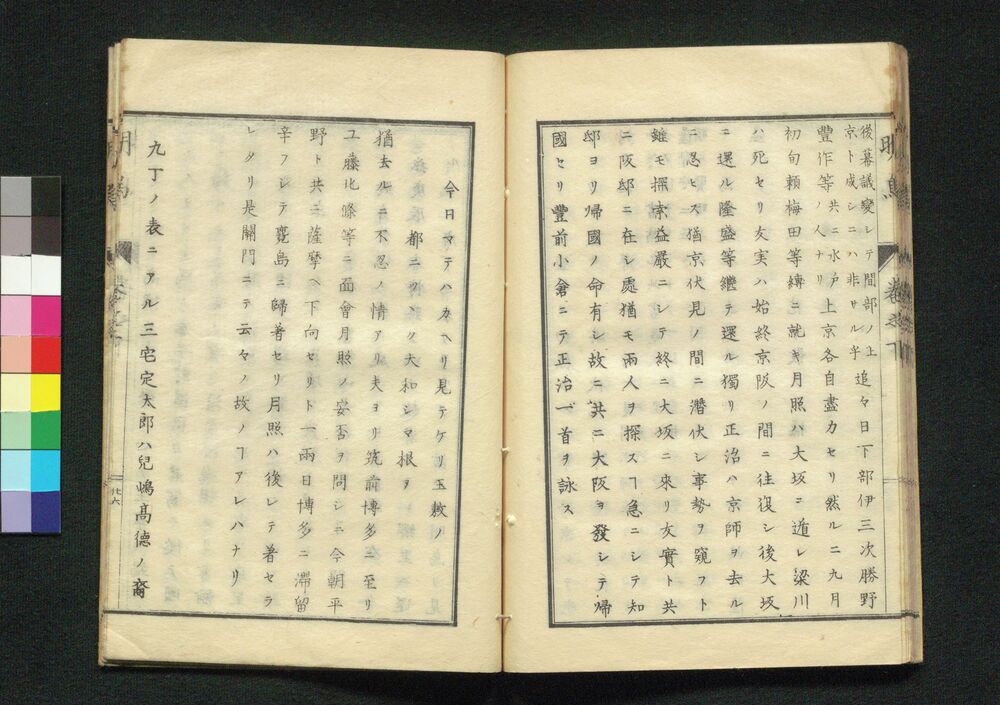 後幕議変シテ間部ノ上
京ト成シニハ非サル乎
追々日下部伊三次勝野
豊作等ノ人ナリ共ニ水戸上京各自盡力セリ然ルニ九月
初旬頼梅田等縛ニ就キ月照ハ大坂ニ遁レ梁川
ハ死セリ友実ハ始終京阪ノ間ニ往復シ後大坂
ニ還ル隆盛等継テ還ル獨リ正治ハ京師ヲ去ル
ニ忍ヒス猶京伏見ノ間ニ潜伏シ事勢ヲ窺フト
雖モ探索益厳ニシテ終ニ大坂ニ來リ友實ト共
ニ阪邸ニ在シ處猶モ兩人ヲ探スヿ急ニシテ知
邸ヨリ帰國ノ命有シ故ニ共ニ大阪ヲ發シテ帰
國セリ豊前小倉ニテ正治一首ヲ詠ス
今日マテハカヘリ見テケリ玉敷ノ
都ニツヽク大和シマ根ヲ
猶去ルニ不忍ノ情アリ夫ヨリ筑前博多ニ至リ
工藤北條等ニ面會月照ノ安否ヲ問シニ今朝平
野ト共ニ薩摩ヘ下向セリト一兩日博多ニ滞留
辛フシテ麑島ニ歸着セリ月照ハ後レテ著セラ
レタリ是關門ニテ云々ノ故ノヿアレハナリ
九丁ノ表ニアル三宅定太郎ハ兒嶋髙徳ノ裔
明烏
卷之下
廿六